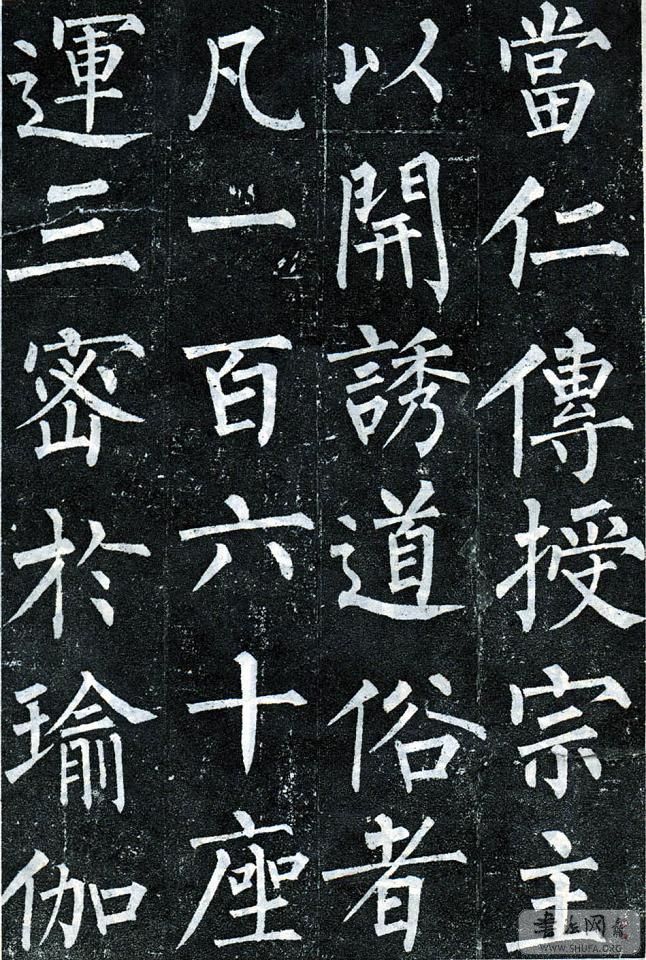 當仁傳授宗主
以開誘道俗者
凡一百六十座
運三密於瑜伽
書法网
WWW.SHUFA.ORG